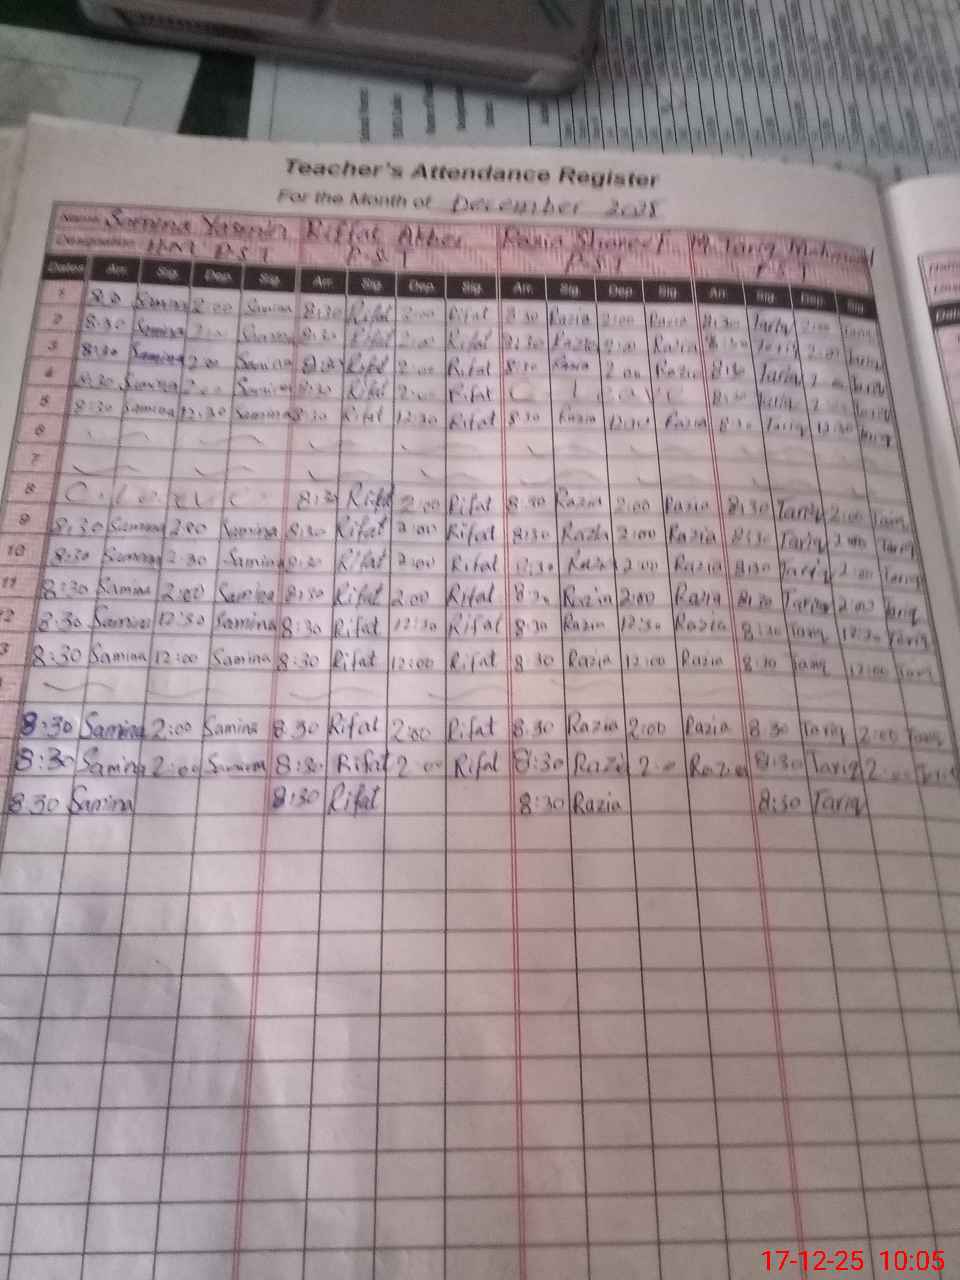 Teacher's Attendance Register
For the Month of December 2025
Name Samina Yasmin Riffat Akber Razia Shareef M. Tariq Mehmood
Designation HM P.S.T P.S.T P.S.T P.S.T
Dates Arr. Sig. Dep. Sig. Arr. Sig. Dep. Sig. Arr. Sig. Dep. Sig. Arr. Sig. Dep. Sig.
1 8:30 Samina 2:00 Samina 8:30 Rifat 2:00 Rifat 8:30 Razia 2:00 Razia 8:30 Tariq 2:00 Tariq
2 8:30 Samina 2:00 Samina 8:30 Rifat 2:00 Rifat 8:30 Razia 2:00 Razia 8:30 Tariq 2:00 Tariq
3 8:30 Samina 2:00 Samina 8:30 Rifat 2:00 Rifat 8:30 Razia 2:00 Razia 8:30 Tariq 2:00 Tariq
4 8:30 Samina 2:00 Samina 8:30 Rifat 2:00 Rifat C. Leave 8:30 Tariq 2:00 Tariq
5 8:30 Samina 12:30 Samina 8:30 Rifat 12:30 Rifat 8:30 Razia 12:30 Razia 8:30 Tariq 12:30 Tariq
6
7
8 C. Leave 8:30 Rifat 2:00 Rifat 8:30 Razia 2:00 Razia 8:30 Tariq 2:00 Tariq
9 8:30 Samina 2:00 Samina 8:30 Rifat 2:00 Rifat 8:30 Razia 2:00 Razia 8:30 Tariq 2:00 Tariq
10 8:30 Samina 2:30 Samina 8:30 Rifat 2:00 Rifat 8:30 Razia 2:00 Razia 8:30 Tariq 2:00 Tariq
11 8:30 Samina 2:00 Samina 8:30 Rifat 2:00 Rifat 8:30 Razia 2:00 Razia 8:30 Tariq 2:00 Tariq
12 8:30 Samina 12:30 Samina 8:30 Rifat 12:30 Rifat 8:30 Razia 12:30 Razia 8:30 Tariq 12:30 Tariq
3 8:30 Samina 12:00 Samina 8:30 Rifat 12:00 Rifat 8:30 Razia 12:00 Razia 8:30 Tariq 12:00 Tariq
8:30 Samina 2:00 Samina 8:30 Rifat 2:00 Rifat 8:30 Razia 2:00 Razia 8:30 Tariq 2:00 Tariq
8:30 Samina 2:00 Samina 8:30 Rifat 2:00 Rifat 8:30 Razia 2:00 Razia 8:30 Tariq 2:00 Tariq
8:30 Samina 8:30 Rifat 8:30 Razia 8:30 Tariq
17-12-25 10:05